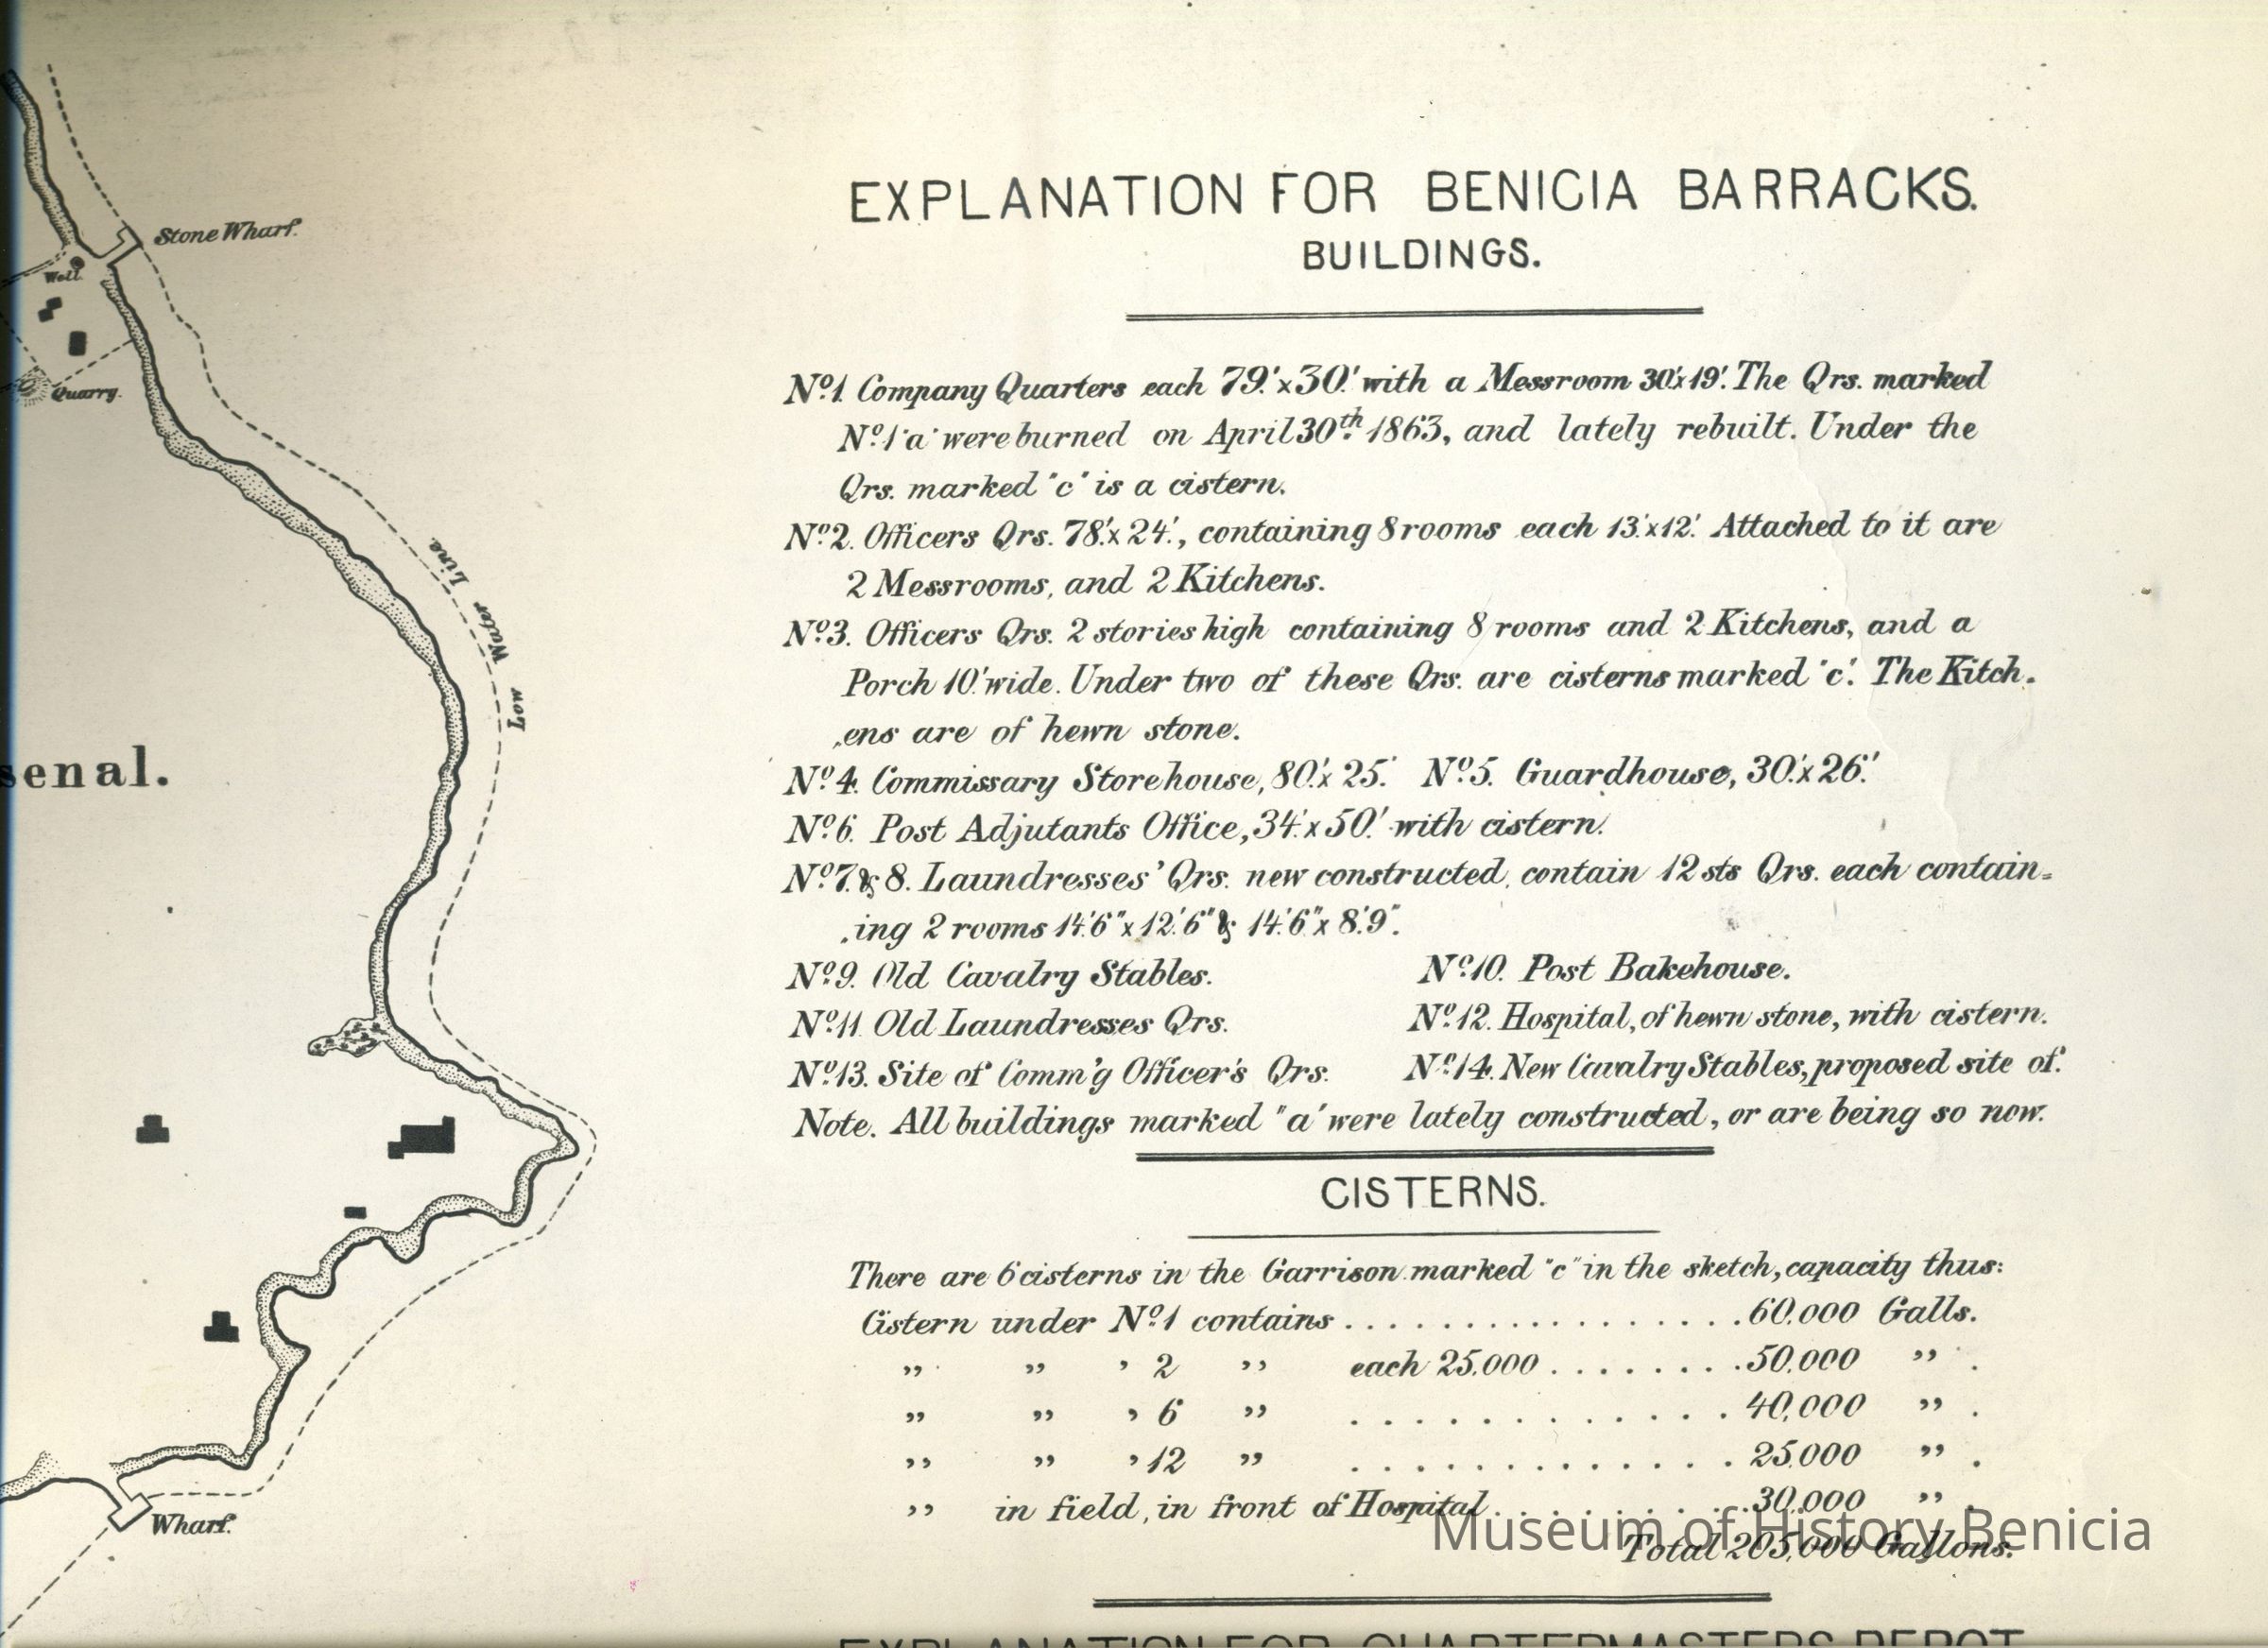 Stone Wharf.
Well
Quarry.
Low Water Line.
senal.
Wharf.
EXPLANATION FOR BENICIA BARRACKS.
BUILDINGS.
Nº1. Company Quarters each 79.'x30.' with a Messroom 30'x19'. The Qrs. marked
Nº1 "a" were burned on April 30th 1863, and lately rebuilt. Under the
Qrs. marked "c" is a cistern.
Nº2. Officers Qrs. 78'.x 24'., containing 8 rooms each 13'.x12'. Attached to it are
2 Messrooms, and 2 Kitchens.
Nº3. Officers Qrs. 2 stories high containing 8 rooms and 2 Kitchens, and a
Porch 10.' wide. Under two of these Qrs. are cisterns marked "c". The Kitch.
,ens are of hewn stone.
Nº4. Commissary Storehouse, 80'.x 25'. Nº5. Guardhouse, 30'.x 26'.
Nº6. Post Adjutants Office, 34'.x 50.' with cistern.
Nº7. & 8. Laundresses' Qrs. new constructed, contain 12 sts Qrs. each contain=
.ing 2 rooms 14.'6"x12.'6" & 14.'6"x 8.'9".
Nº9. Old Cavalry Stables. Nº10. Post Bakehouse.
Nº11. Old Laundresses Qrs. Nº12. Hospital, of hewn stone, with cistern.
Nº13. Site of Comm'g Officer's Qrs. Nº14. New Cavalry Stables, proposed site of.
Note. All buildings marked "a" were lately constructed, or are being so now.
CISTERNS.
There are 6 cisterns in the Garrison marked "c" in the sketch, capacity thus:
Cistern under Nº1 contains . . . . . . . . . . . . . . . . . 60,000 Galls.
" " " 2 " each 25,000 . . . . . . . . 50,000 " .
" " " 6 " . . . . . . . . . . . . . 40,000 " .
" " " 12 " . . . . . . . . . . . . . 25,000 " .
" in field, in front of Hospital . . . . . . . . . 30,000 " .
Total 205,000 Gallons.
Museum of History Benicia
EXPLANATION FOR QUARTERMASTERS DEPOT